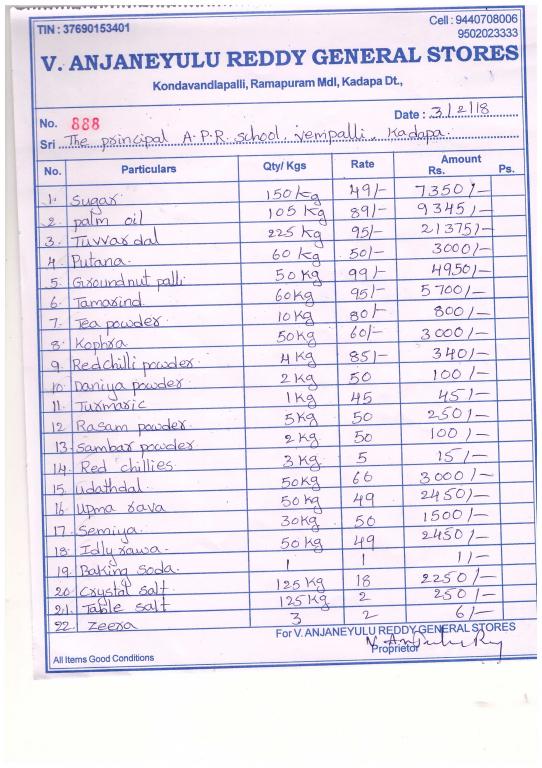 TIN : 37690153401
Cell : 9440708006
9502023333
V. ANJANEYULU REDDY GENERAL STORES
Kondavandlapalli, Ramapuram Mdl, Kadapa Dt.,
No. 888
Date : 3/2/18
Sri The principal A.P.R. school, vempalli, Kadapa.
No. Particulars Qty/ Kgs Rate Amount
Rs. Ps.
1. Sugar 150 kg 49/- 7350/-
2. palm oil 105 kg 89/- 9345/-
3. Tuvvar dal 225 kg 95/- 21375/-
4. Putana. 60 kg 50/- 3000/-
5. Groundnut palli 50 kg 99/- 4950/-
6. Tamarind. 60 kg 95/- 5700/-
7. Tea powder. 10 kg 80/- 800/-
8. Kophra 50 kg 60/- 3000/-
9. Redchilli powder. 4 kg 85/- 340/-
10. Daniya powder. 2 kg 50 100/-
11. Turmaric 1 kg 45 45/-
12. Rasam powder. 5 kg 50 250/-
13. Sambar powder 2 kg 50 100/-
14. Red chillies 3 kg 5 15/-
15. udathdal. 50 kg 66 3000/-
16. upma rava 50 kg 49 2450/-
17. Semiya. 30 kg 50 1500/-
18. Idly rawa. 50 kg 49 2450/-
19. Baking soda. 1 1 1/-
20. Crystal salt. 125 kg 18 2250/-
21. Table salt 125 kg 2 250/-
22. Zeera 3 2 6/-
For V. ANJANEYULU REDDY GENERAL STORES
Proprietor
All Items Good Conditions